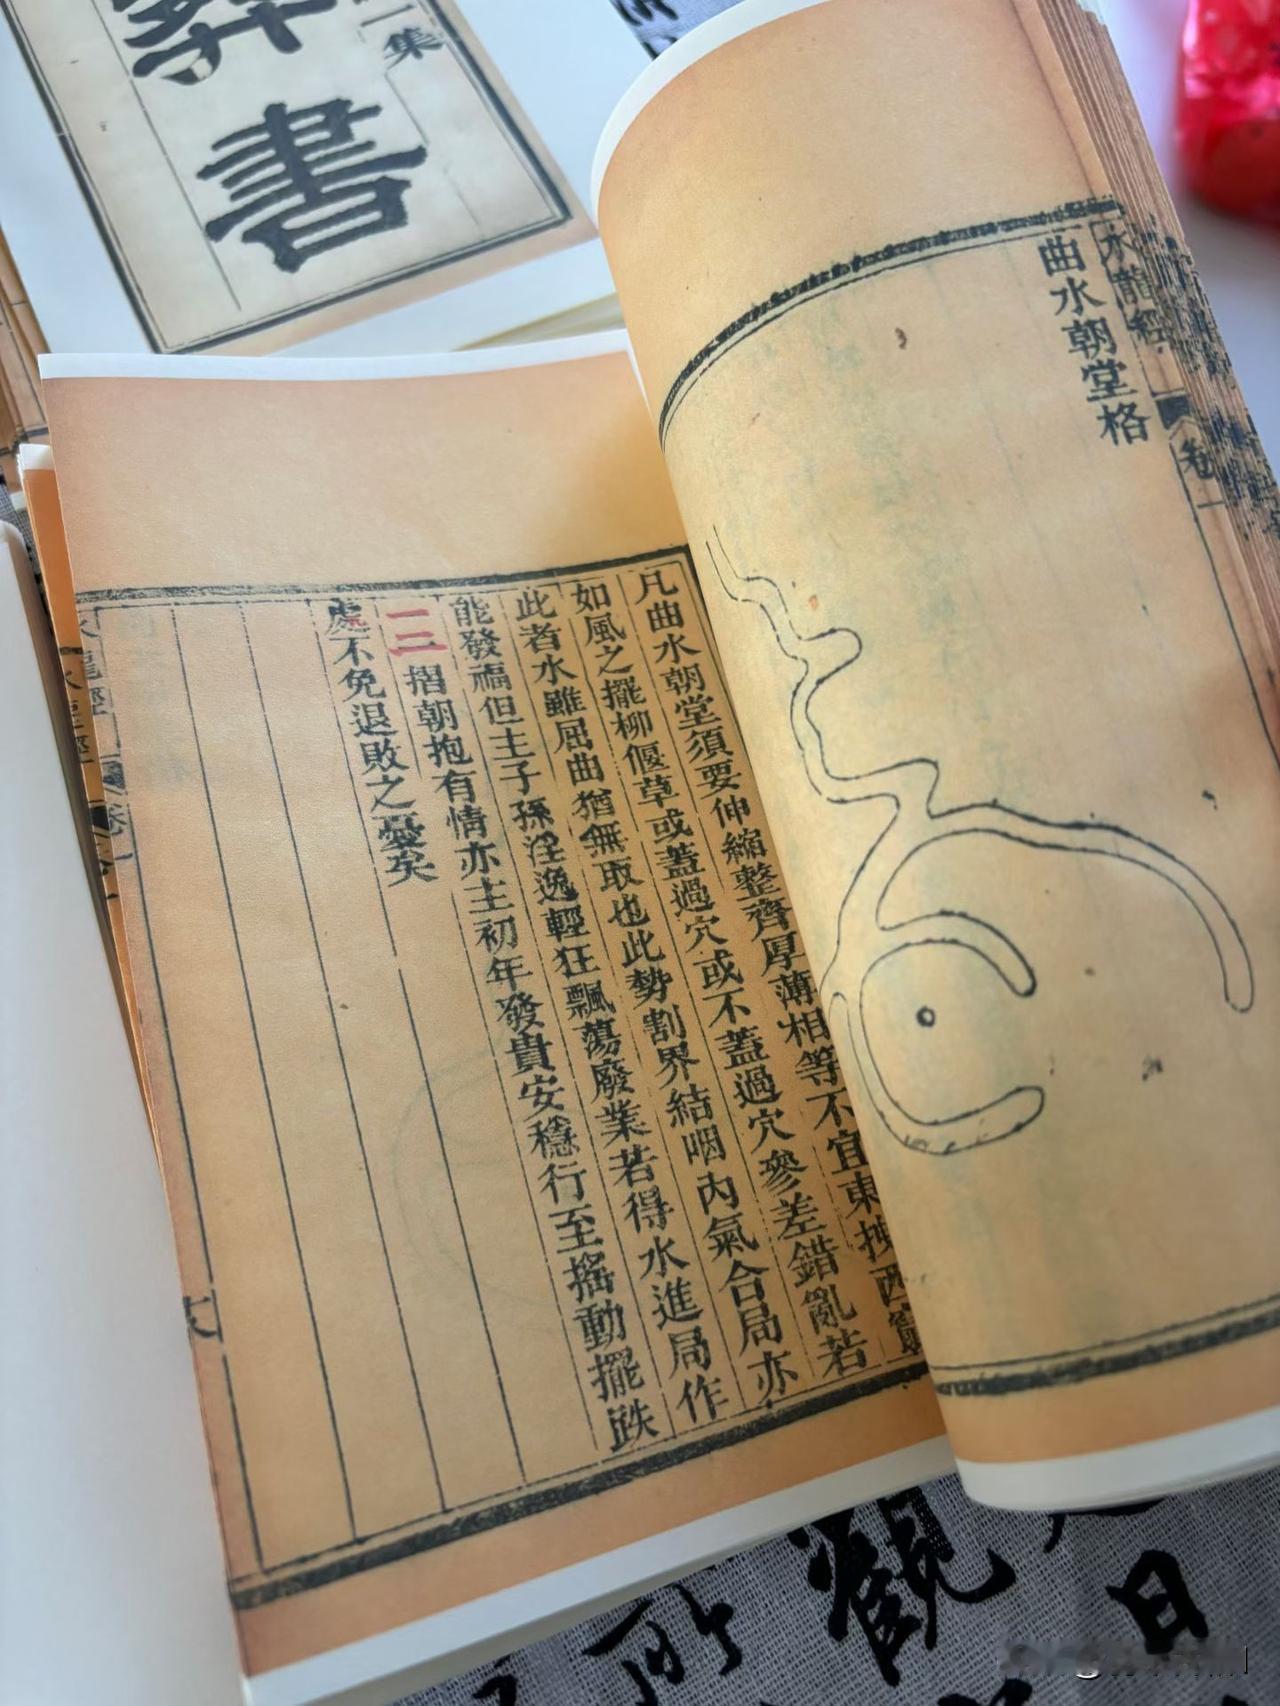 一集
書
水龍經
卷一
曲水朝堂格
凡曲水朝堂須要伸縮整齊厚薄相等不宜東抰西竄
如風之擺柳偃草或蓋過穴或不蓋過穴參差錯亂若
此者水雖屈曲猶無取也此勢割界結咽內氣合局亦
能發福但主子孫淫逸輕狂飄蕩廢業若得水進局作
一二摺朝抱有情亦主初年發貴安穩行至搖動擺跌
處不免退敗之憂矣
龍經
卷
觀
所
日